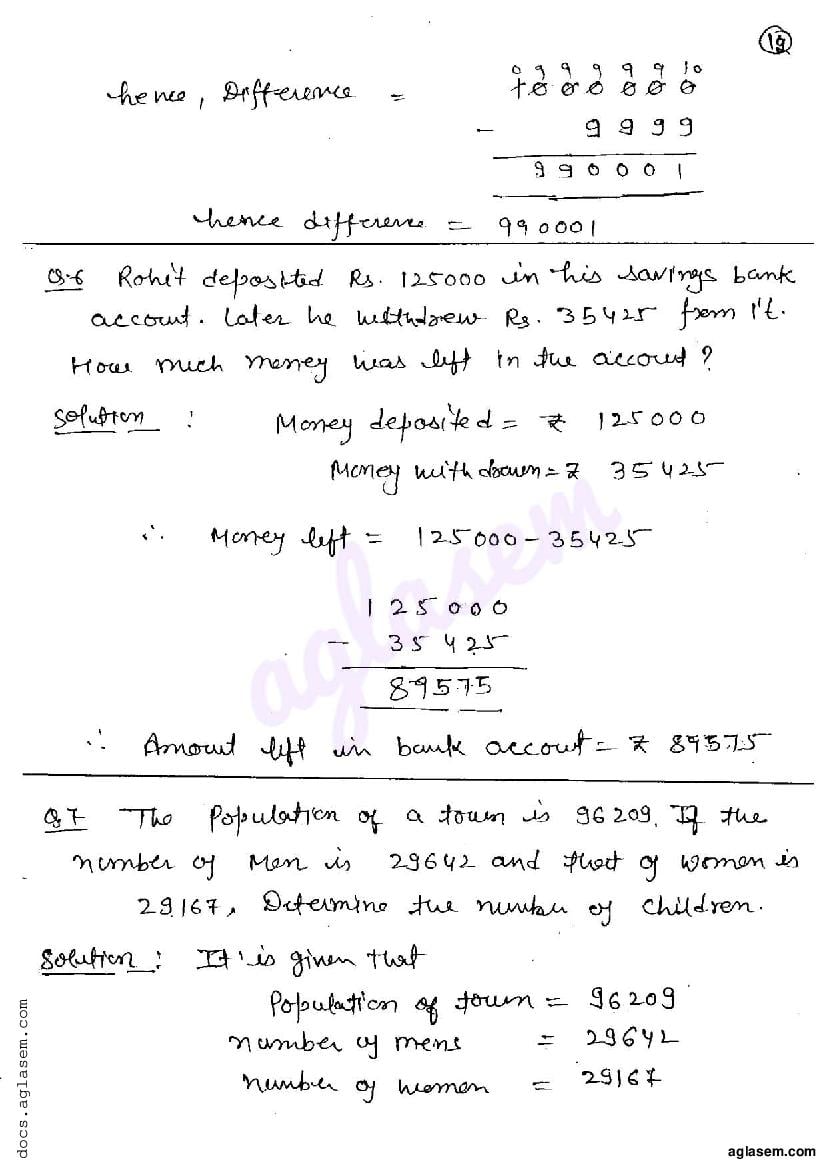 19
0 9 9 9 9 9 10
hence, Difference = 1000000
- 9999
990001
hence difference = 990001
Q.6 Rohit deposited Rs. 125000 in his savings bank
account. Later he withdrew Rs. 35425 from it.
How much money was left in the account?
Solution : Money deposited = ₹ 125000
Money withdrawn = ₹ 35425
∴ Money left = 125000 - 35425
125000
- 35425
89575
∴ Amount left in bank account = ₹ 89575
Q7 The Population of a town is 96209. If the
number of Men is 29642 and that of women is
29167, Determine the number of children.
Solution : It is given that
Population of town = 96209
number of mens = 29642
number of women = 29167
aglasem
docs.aglasem.com
aglasem.com